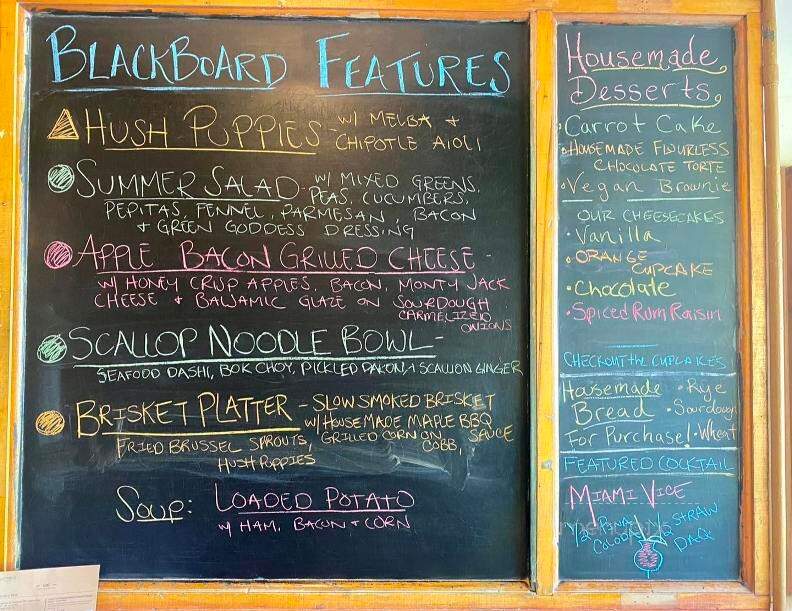 BLACKBOARD FEATURES
HUSH PUPPIES - W/ MELBA +
CHIPOTLE AIOLI
SUMMER SALAD - W/ MIXED GREENS,
PEAS, CUCUMBERS,
PEPITAS, FENNEL, PARMESAN, BACON
+ GREEN GODDESS DRESSING
APPLE BACON GRILLED CHEESE -
W/ HONEY CRISP APPLES, BACON, MONTY JACK
CHEESE + BALSAMIC GLAZE ON SOURDOUGH
CARMELIZED
ONIONS
SCALLOP NOODLE BOWL -
SEAFOOD DASHI, BOK CHOY, PICKLED DAIKON, + SCALLION GINGER
BRISKET PLATTER - SLOW SMOKED BRISKET
W/ HOUSEMADE MAPLE BBQ
SAUCE
FRIED BRUSSEL SPROUTS, GRILLED CORN ON
COBB,
HUSH PUPPIES
Soup: LOADED POTATO
W/ HAM, BACON + CORN
Housemade
Desserts,
• Carrot Cake
• HOUSEMADE FLOURLESS
CHOCOLATE TORTE
• Vegan Brownie
OUR CHEESECAKES
• Vanilla
• ORANGE
CUPCAKE
• Chocolate
• Spiced Rum Raisin
CHECKOUT the CUPCAKES
Housemade • Rye
Bread • Sourdough
For Purchase! • Wheat
FEATURED COCKTAIL
MIAMI VICE
1/2 PINA
COLODA
1/2 STRAW
DAQ